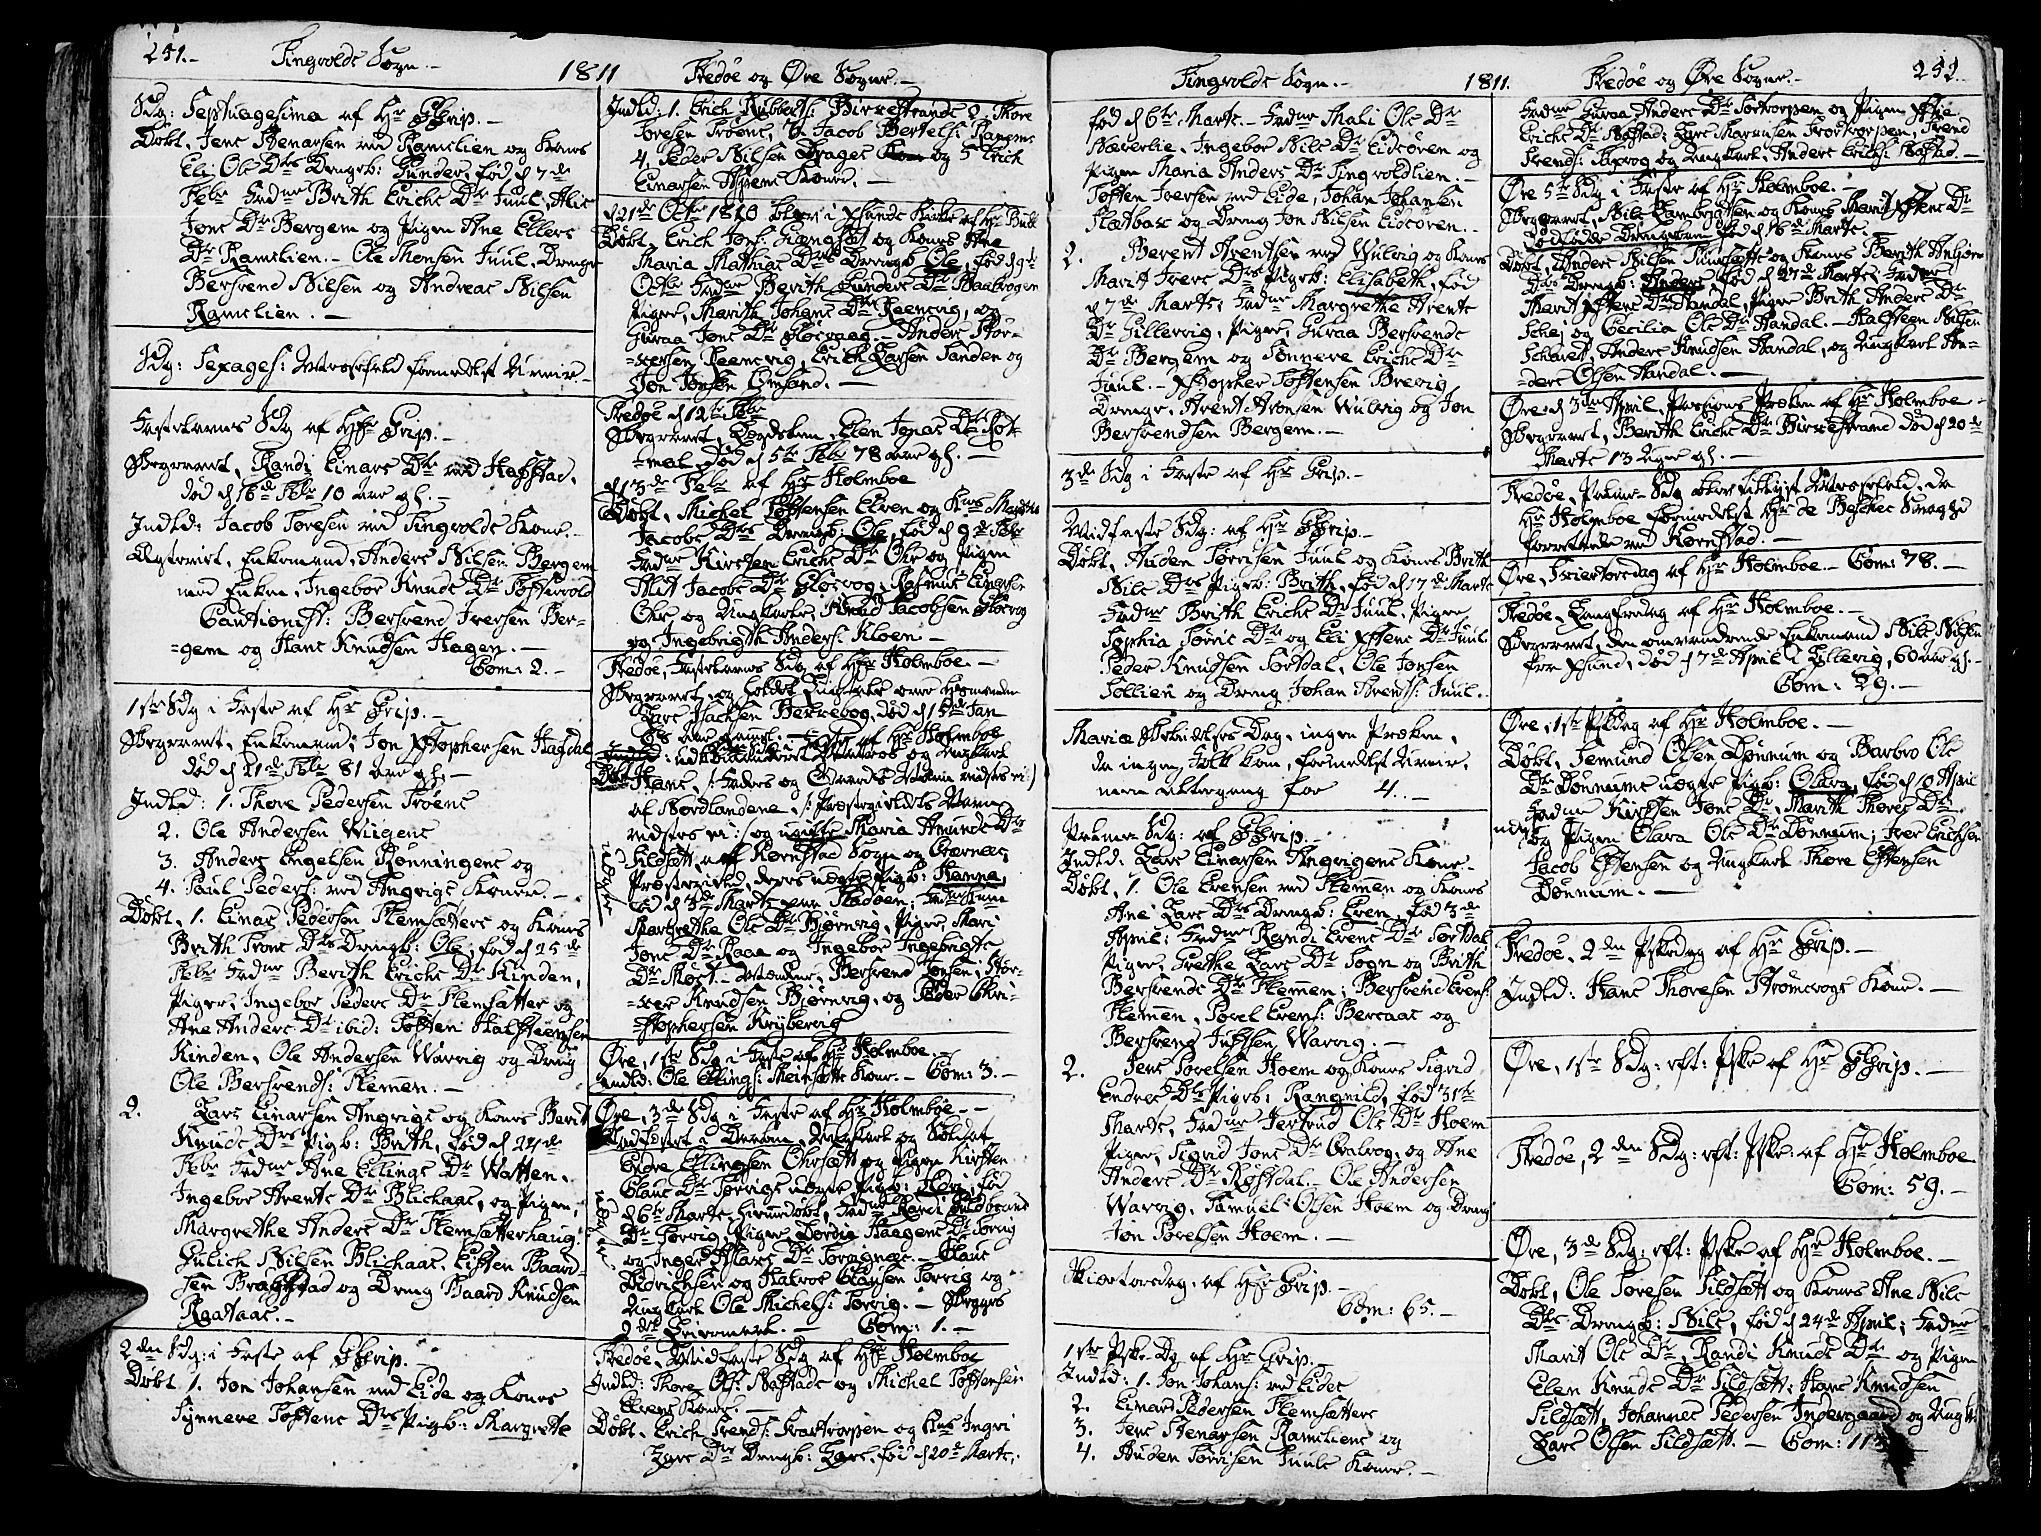 251.-
Tingvolds Sogn.-
1811
Fredøe og Øre Sogne.-
Sdg: Septuagesima af Hr Grip.-
Døbt, Jens Stenersen ved Ramslien og Kones
Eli Ols Drs Drengb: Gunder, fød d 7de
Febr Fadne Brith Erichs Dr Juul, Alis
Jons Dr Bergem og Pigen Ane Ellers
Dr Ramslien.- Ole Monsen Juul, Drenge
Bersvend Nilsen og Andreas Nilsen
Ramslien.-
Sdg: Sexages: Messefald formedelst Uveir.-
Fastelavns Sdg af Hr Grip.-
Begravet, Randi Einars Dr ved Hafstad,
død d 16de Febr 10 aar gl.-
Indld: Jacob Toresen ved Tingvolds Kone.-
Ægteviet, Enkemand, Anders Nilsen Bergem
med Enken, Ingebor Knuds Dr Toftevold
Cautionist: Bersvend Iversen Ber-
=gem og Hans Knudsen Hagen.-
Com: 2.-
1ste Sdg i Faste af Hr Grip.-
Begravet, Enkemand, Jon Xstophersen Hagdal
død d 21de Febr 81 aar gl.-
Indld: 1. Thore Pedersen Trøens
2. Ole Andersen Wiigens
3. Anders Engelsen Rønningens og
4. Paul Peders: ved Angvigs Koner.-
Døbt, 1. Einar Pedersen Flemsætters og Kones
Brith Trons Drs Drengb: Ole, fød d 25de
Febr Fadne Berith Erichs Dr Kinden,
Piger, Ingebor Peders Dr Flemsætter og
Ane Anders Dr ibid: Tosten Halsteensen
Kinden, Ole Andersen Warvig og Dreng
Ole Bersvends: Flemmen.-
2. Lars Einarsen Angvigs og Kones Berit
Knuds Drs Pigb: Brith, fød d 24de
Febr Fadne Ane Ellings Dr Watten,
Ingebor Arents Dr Blichaas, og Pigen,
Margrethe Anders Dr Flemsætterhaug:
Gulich Nilsen Blichaas, Eisten Baard-
sen Bragstad og Dreng Baard Knudsen
Raataas.-
2den Sdg: i Faste af Grip.
Døbt 1. Jon Johansen ved Eide og Kones
Synnove Tostens Drs Pigb: Margrethe
Indld: 1. Erich Rubberts: Birkestrands 2. Thore
Toresen Trøens, 3. Jacob Bertels: Rangnes
4. Peder Nilsen Drages og 5 Erich
Einarsen Koner.-
d 21de Octbr 1810 blev i Xsunds Kirke af Hr Bull
Døbt, Erich Jons: og Kones Ane
Maria Mathias Drs Drengb Ole, fød d 9de
Octbr Fadne Berith Gunders Dr
Piger, Marith Johans Dr Reensvig, og
Guraa Jens Dr Flosvaag.- Anders Stør-
=kersen Reensvig, Erich Larsen Sanden og
Jon Jonsen.-
Fredøe d 12te Febr
Begravet, Lægdslem, Elen Jonas Dr
død d 5te Febr 78 aar gl.-
d 13de Febr af Hr Holmboe
Døbt, Michel Tostensen Elven og Kones Marith
Jacobs Drs Drengb: Ole, fød d 9de Febr
Fadne Kirsten Erichs Dr Ohr og Pigen
Jacobs Dr Flosvog, Rasmus Einarsen
Ohr, og Ungkarle, Knud Jacobsen Flosvog
og Ingebrigth Anders: Kloen.-
Fredøe, Fastelavns Sdg af Hr Holmboe.-
Begravet, og holdet Ligtale over Huusmanden
Lars Isachsen Bekkebog, død d 15de Jan
68 aar gammel.-
Døbt Hans, /: Faders og Navn vidstes ei :/
af Nordlandene, /: Præstegieldets Navn
vidstes ei :/ og ugifte Maria Amunds Drs
Sildsætt, af Kornstad Sogn og Qvernæs
Præstegield, deres uægte Pigb: Hanna,
fød d 3de Marts paa Fladsøen; Fadne
Margrethe Ols Dr Bjørnvig, Piger, Mari
Jons Dr Raae og Ingebor Ingebrigts
Dr Møst.- Bersvend Jonsen, Stør-
=ker Knudsen Bjørnvig, og Peder Chri-
=stophersen Krybervig
Øre, 1ste Sdg i Faste af Hr Holmboe.-
Indld: Ole Ellings: Meisætts Kone.- Com: 3.-
Øre, 3de Sdg i Faste af Hr Holmboe.-
Ungkarl og Soldat
Endre Ellingsen Ohrsætt og Pigen Kirsten
Claus Dr Torvigs uægte Pigb: fød
d 6te Marts, hiemmedøbt, Fadne Randi Hildbrands
Dr Torvig, Piger, Dordia Haagens Dr Torvig
og Inger Dr Torvignæs.- Claus
Didrichsen og Halvor Clausen Torvig og
Ungkarl Ole Michels: Torvig.- Begges
2det Leiermaal.- Com: 1.-
Fredøe, Midfaste Sdg af Hr Holmboe
Indld: Thore Ols: Nastads og Michel Tostensen
Elvens Koner.-
Døbt, Erich Trends: Trøetrøpen og Kones Ingri
Lars Drs Drengb: Lars, fød d 20de Marts,
Tingvolds Sogn.-
1811.
Fredøe og Øre Sogne.-
252.
fød d 6te Marts.- Fadne Mali Ols Dr
Nærerlie, Ingebor Nils Dr Eidsøren og
Pigen Maria Anders Dr Tingvoldlien.-
Tosten Iversen ved Eide, Johan Johansen
Fladbakk og Dreng Jon Nilsen Eidsøren.-
2. Berent Arentsen ved Wulvig og Kones
Marit Ivers Drs Pigb: Elisabeth, fød
d 7de Marts; Fadne Margrethe Arents
Dr Gullervig, Piger, Guraa Bersvends
Dr Bergem og Synnove Erichs Dr
Juul.- Xstopher Tostensen Brevig
Drenge, Arent Aronsen Wulvig og Jon
Bersvendsen Bergem.-
3de Sdg i Faste af Hr Grip.-
Midfaste Sdg: af Hr Grip.-
Døbt, Auden Torrisen Juul og Kones Brith
Nils Drs Pigb: Brith, fød d 17de Marts
Fadne Brith Erichs Dr Juul, Piger
Sophia Torris Dr og Eli Xstens Dr Juul.
Peder Knudsen Torsdal, Ole Jonsen
Sollien og Dreng Johan Arends: Juul.-
Mariæ Bebudelses Dag, ingen Præken,
da ingen Folk kom, formedelst Uveir,
4.-
Palme Sdg: af Grip.-
Indld: Lars Einarsen Angvigens Kone.-
Døbt, 1. Ole Evensen ved Flemmen og Kones
Ane Lars Drs Drengb: Even, fød 3de
April; Fadne Randi Evens Dr Torsdal
Piger, Grethe Lars Dr Sogn og Brith
Bersvends Dr Flemmen; Bersvend Evens:
Flemmen, Torel Evens: Bersaas og
Bersvend Justsen Warvig.-
2. Jens Torelsen Hoem og Kones Sigrid
Endres Drs Pigb: Rangnild, fød 31te
Marts, Fadne Gertrud Ols Dr Hoem
Piger, Sigrid Jons Dr Qvalvog, og Ane
Anders Dr Røstdal.- Ole Andersen
Warvig, Samuel Olsen Hoem og Dreng
Jon Torelsen Hoem.-
Skiertorsdag, af Hr Grip.
Com: 65.-
1ste Pske Dg af Hr Grip.
Indld: 1. Jon Johans: ved Eides
2. Einar Pedersen Flemsætters
3. Jens Stenersen Ramsliens og
4. Auden Torrisen Juuls Koner.-
Fadne Guraa Anders Dr og Pigen
Erichs Dr Nastad; Lars Trend
Trends: og Ungkarl, Anders Erichs: Nastad.-
Øre 5te Sdg i Faste af Hr Holmboe.-
Begravet, Nils Lambrigtsen og Kones Marit Xstens Dr
Dødfødde Drengbarn fød d 16de Marts.-
Døbt, Anders Nilsen og Kones Berith
Drs Drengb: Anders, fød d 27de Marts Fadne
Marit Xstens Dr Aandal, Piger Brith Anders Dr
Schei og Cecilia Ols Dr Aandal.- Halsteen Nilsen
Anders Knudsen Aandal, og Ungkarl An-
=ders Olsen Aandal.-
Øre, d 3de April, Passions Præken af Hr Holmboe.-
Begravet, Berith Erichs Dr Birkestrand død d 20de
Marts 13 Uger gl.-
Fredøe, Palme Sdg Messefald, da
Hr Holmboe formedelst Hr de Besches
forrettede ved Kornstad.-
Øre, Skiertorsdag af Hr Holmboe.- Com: 78.-
Fredøe, Langfredag af Hr Holmboe.-
Begravet, den omvandrende Enkemand Nils Nilsen
fra Xsund, død d 7de April i Ellevig, 60 aar gl.-
Com: 29.-
Øre, 1ste Pskdag af Hr Holmboe.-
Døbt, Semund Olsen Dønnum og Barbro Ols
Dr Dønnums uægte Pigb: Olava, fød d 10 April
Fadne Kirsten Jons Dr, Marith Thores Dr
og Pigen Olava Ols Dr Dønnum; Iver Erichsen
Jacob Estensen og Ungkarl Thore Estensen
Dønnum.-
Fredøe, 2den Pskdag af Hr Grip.-
Indld: Hans Thoresen Strømsvogs Kone.-
Øre, 1ste Sdg: eft: Pske af Hr Grip.-
Fredøe, 2den Sdg: eft: Pske: af Hr Holmboe
Com: 59.-
Øre, 3de Sdg: eft: Pske af Hr Holmboe.-
Døbt, Ole Toresen Sildsætt og Kones Ane Nils
Drs Drengb: Nils, fød d 24de April; Fadne
Marit Ols Dr, Randi Knuds Dr og Pigen
Elen Knuds Dr Sildsætt; Hans Knudsen
Sildsætt, Johannes Pedersen Indergaard og Ungk:
Lars Olsen Sildsætt.- Com: 11